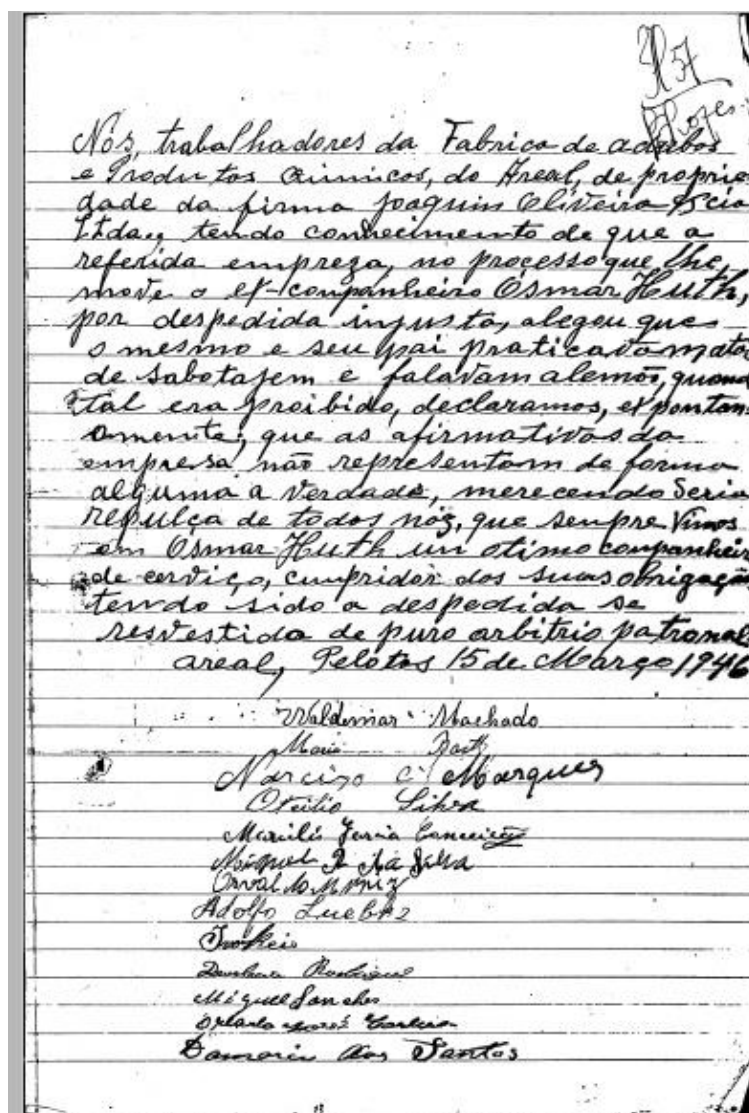 57
Nós, trabalhadores da Fabrica de adubos
e Produtos Quimicos, do Areal, de proprie
dade da firma Joaquim Oliveira & cia
Ltda., tendo conhecimento de que a
referida empreza, no processo que lhe
move o ex-companheiro Osmar Huth,
por despedida injusta, alegou que
o mesmo e seu pai praticavam atos
de sabotajem e falavam alemão, quand
tal era proibido, declaramos, expontan
amente, que as afirmativas da
empresa não representam de forma
alguma a verdade, merecendo Seria
repulça de todos nóz, que sempre vimos
em Osmar Huth un otimo companheir
de cerviço, cumpridor das suas obrigaçõ
tendo sido a despedida se
resvestida de puro arbitrio patronal
areal, Pelotas 15 de Março 1946
Waldemar Machado
Narcizo C. Marques
Otcilio Silva
Faria Conceição
Miguel da Silva
Adolfo
Rodrigues
Miguel Sanches
dos Santos